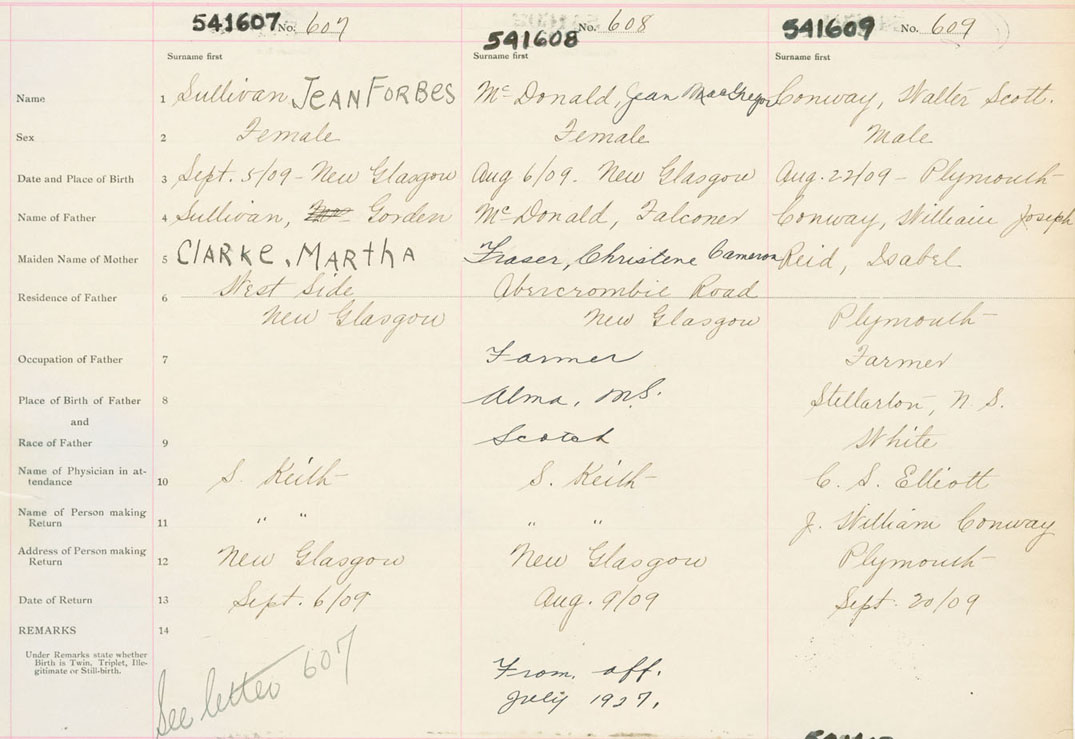 541607 No. 607 541608 No. 608 541609 No. 609
Surname first Surname first Surname first
Name 1 Sullivan, JEAN FORBES McDonald, Jean MacGregor Conway, Walter Scott.
Sex 2 Female Female Male
Date and Place of Birth 3 Sept. 5/09 - New Glasgow Aug 6/09. New Glasgow Aug. 22/09 - Plymouth
Name of Father 4 Sullivan, Gorden McDonald, Falconer Conway, William Joseph
Maiden Name of Mother 5 CLARKE, MARTHA Fraser, Christene Cameron Reid, Isabel
Residence of Father 6 West Side Abercrombie Road
New Glasgow New Glasgow Plymouth
Occupation of Father 7 Farmer Farmer
Place of Birth of Father 8 Alma, N.S. Stellarton, N.S.
and
Race of Father 9 Scotch White
Name of Physician in at-
tendance 10 S. Keith S. Keith C. S. Elliott
Name of Person making
Return 11 " " " " J. William Conway
Address of Person making
Return 12 New Glasgow New Glasgow Plymouth
Date of Return 13 Sept. 6/09 Aug. 9/09 Sept. 20/09
REMARKS 14
Under Remarks state whether
Birth is Twin, Triplet, Ille-
gitimate or Still-birth.
See letter 607
From. aff.
July 1927.